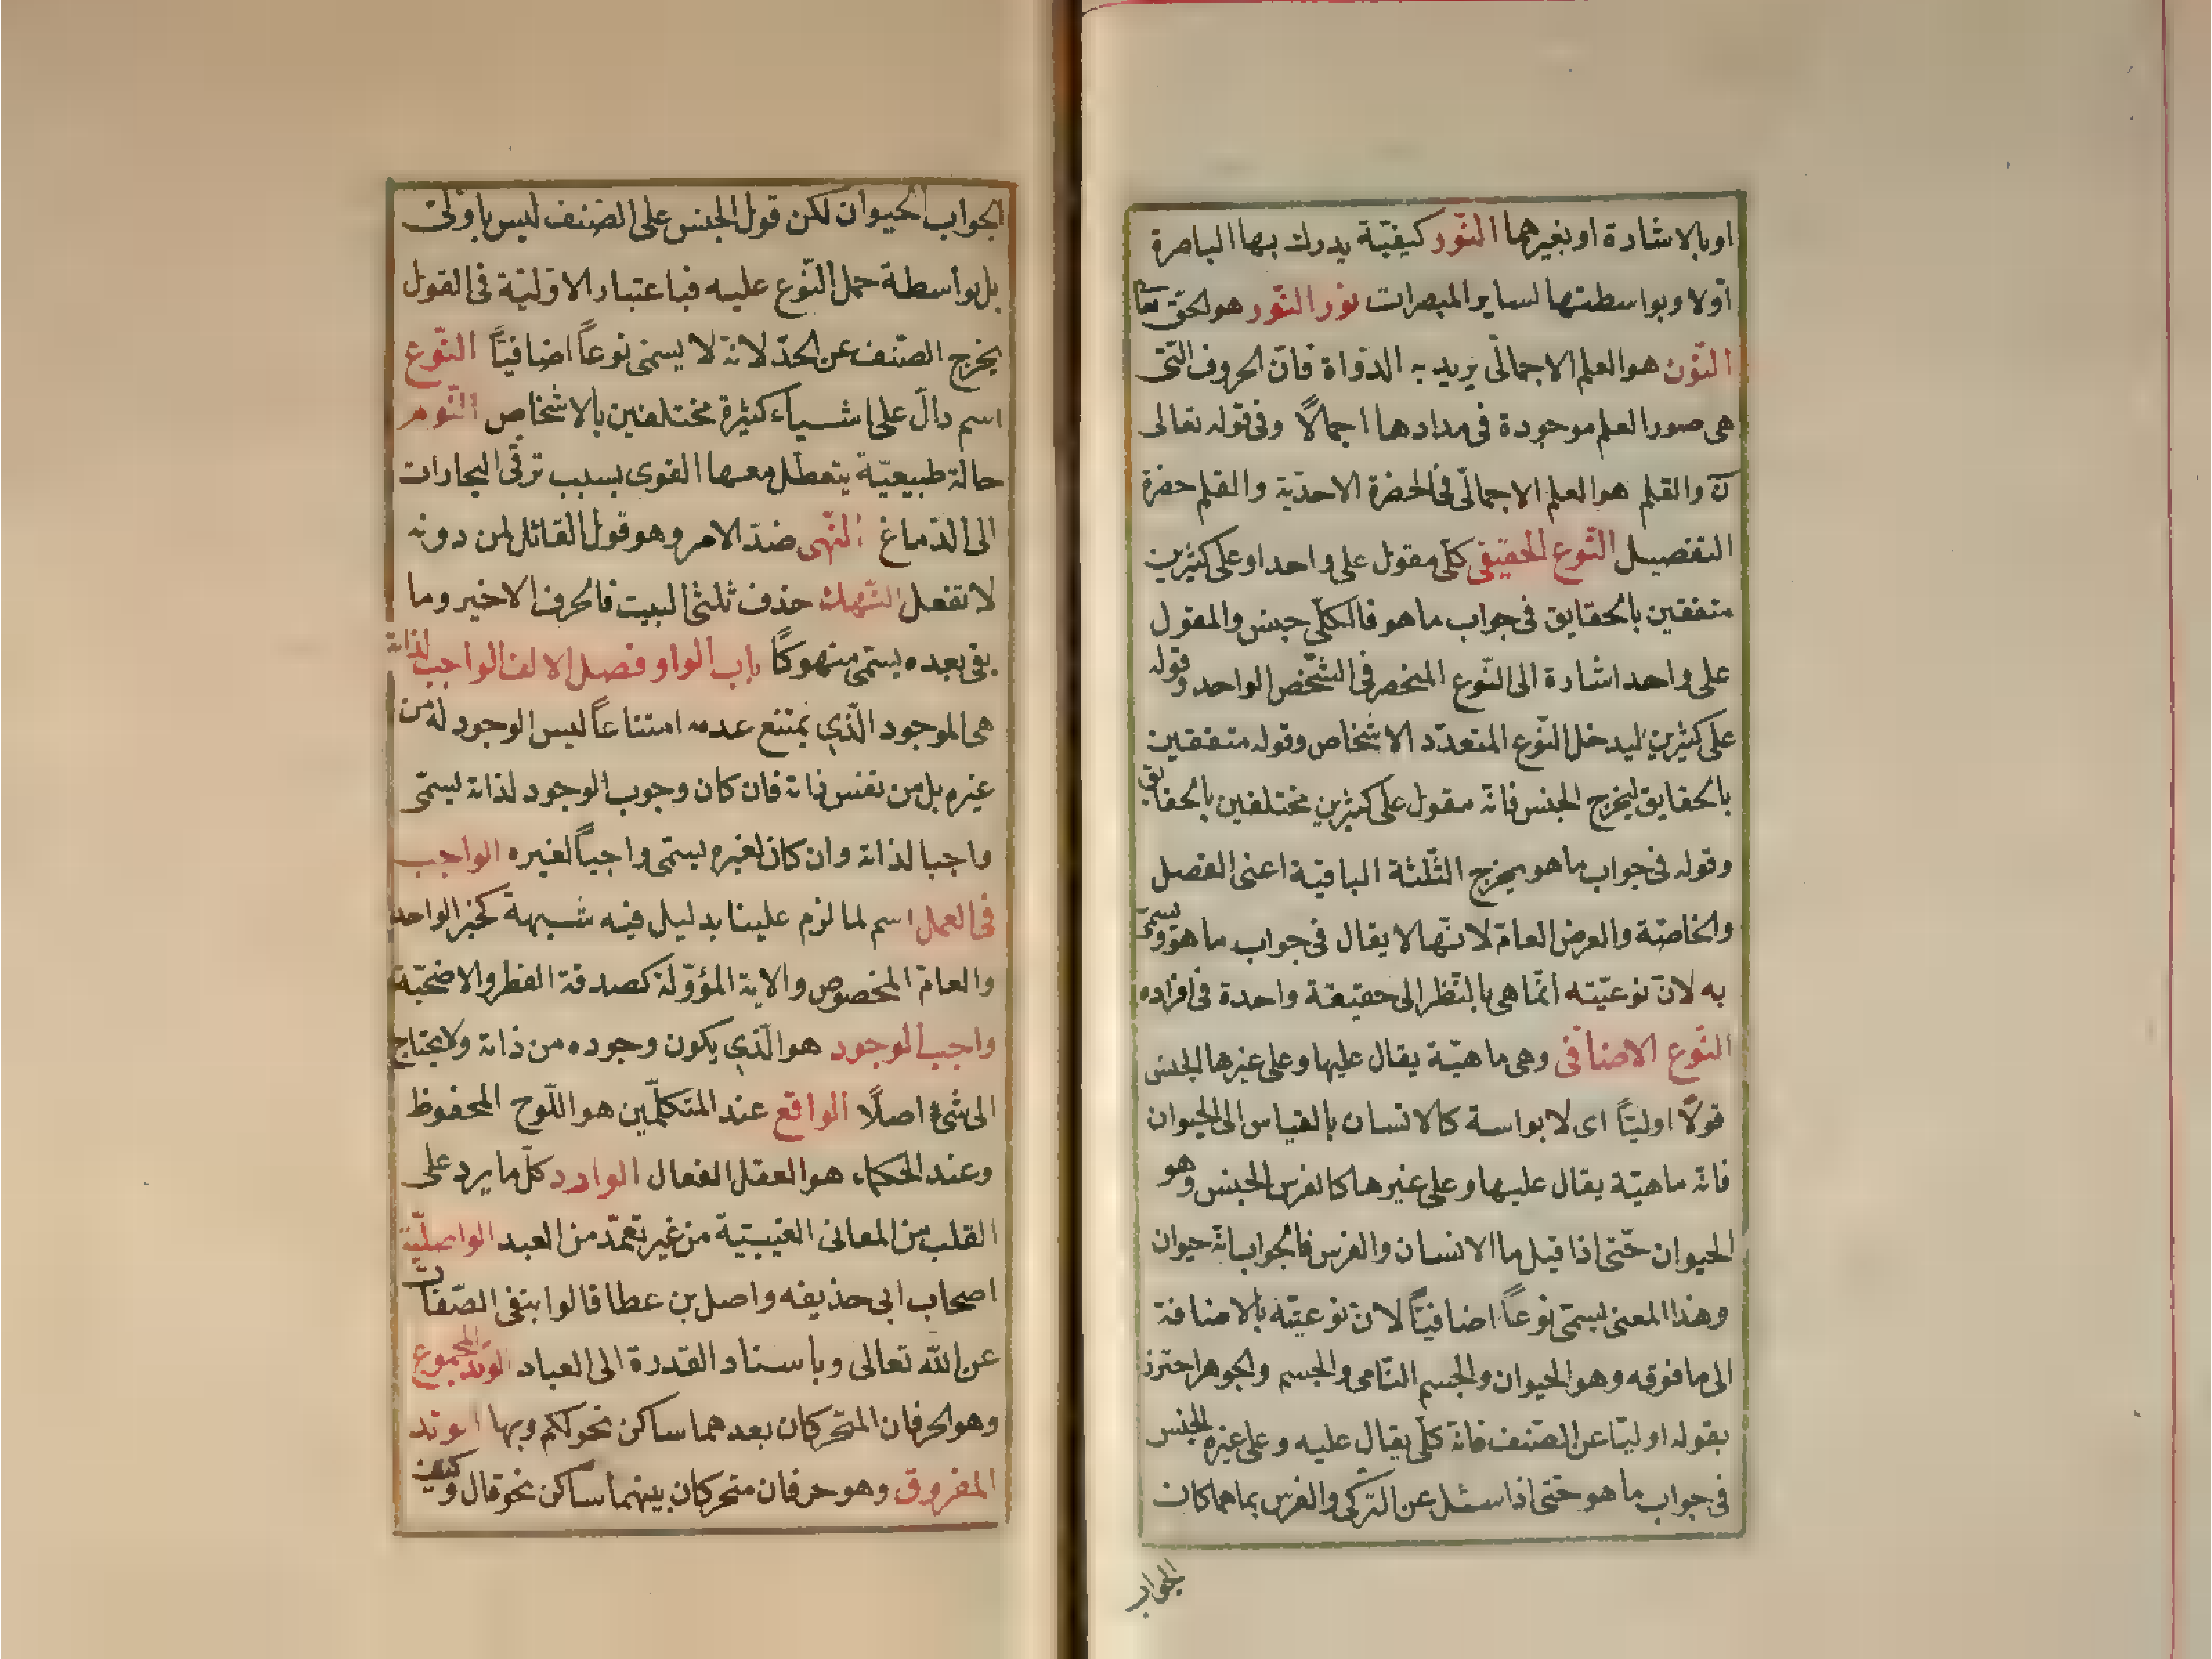 او بالاشارة او بغيرهما النّور كيفيّة يدرك بها الباصرة
اوّلا وبواسطتها لساير المبصرات نور النّور هو الحق تعا
النّون هو العلم الاجمالّى يريد به الدّواة فانّ الحروف الّتى
هى صور العلم موجودة فى مدادها اجمالًا وفى قوله تعالى
نّ والقلم هو العلم الاجمالّى فى الحضرة الاحديّة والقلم حضرة
التفصيل النّوع الحقيقى كلّى مقول على واحد او على كثيرين
متفقين بالحقايق فى جواب ما هو فالكلّى جنس والمقول
على واحد اشارة الى النّوع المنحصر فى الشّخص الواحد وقوله
على كثيرين ليدخل النّوع المتعدّد الاشخاص وقوله متفقين
بالحقايق ليخرج الجنس فانّه مقول على كثيرين مختلفين بالحقايق
وقوله فى جواب ما هو يخرج الثّلثة الباقية اعنى الفصل
والخاصّة والعرض العامّ لانّها لا يقال فى جواب ما هو ويسمّى
به لانّ نوعيّته انّما هى بالنّظر الى حقيقة واحدة فى افراده
النّوع الاضافى وهى ماهيّة يقال عليها وعلى غيرها الجنس
قولًا اوليّاً اى لا بواسة كالانسان بالقياس الى الحيوان
فانّه ماهيّة يقال عليها وعلى غيرها كالفرس الجنس وهو
الحيوان حتّى اذا قيل ما الانسان والفرس فالجواب انّه حيوان
وهذا المعنى يسمّى نوعاً اضافيّاً لانّ نوعيّته بالاضافة
الى ما فوقه وهو الحيوان والجسم النّامى والجسم والجوهر احترز
بقوله اوليّا عن الصّنف فانّه كلّى يقال عليه وعلى غيره الجنس
فى جواب ما هو حتّى اذا سئل عن التركى والفرس بماهما كان
الجواب
الجواب الحيوان لكن قول الجنس على الصّنف ليس باولىّ
بل بواسطة حمل النّوع عليه فباعتبار الاوّليّة فى القول
يخرج الصّنف عن الحدّ لانّه لا يسمّى نوعاً اضافيّاً النّوع
اسم دالّ على اشياء كثيرة مختلفين بالاشخاص النّوم
حالة طبيعيّة يتعطّل معها القوى بسبب ترقّى البخارات
الى الدّماغ النّهى ضدّ الامر وهو قول القائل لمن دونه
لا تفعل النّهك حذف ثلثى البيت فالحرف الاخير وما
بقى بعده يسمّى منهوكاً باب الواو فصل الالف الواجب لذاته
هى الموجود الّذى يمتنع عدمه امتناعاً ليس الوجود له من
غيره بل من نفس ذاته فان كان وجوب الوجود لذاته يسمّى
واجبا لذاته وان كان لغيره يسمّى واجباً لغيره الواجب
فى العمل اسم لما لزم علينا بدليل فيه شبهة كخبر الواحد
والعامّ المخصوص والاية المؤوّلة كصدقة الفطر والاضحيّة
واجب الوجود هو الّذى يكون وجوده من ذاته ولا يحتاج
الى شئ اصلًا الواقع عند المتكلّمين هو اللّوح المحفوظ
وعند الحكماء هو العقل الفعال الوارد كلّ ما يرد على
القلب من المعانى الغيبيّة من غير تعمّد من العبد الواصليّة
اصحاب ابى حذيفه واصل بن عطا قالوا بنفى الصّفات
عن اللّه تعالى وباسناد القدرة الى العباد الوتد المجموع
وهو الحرفان المتحركان بعدهما ساكن نحو لكم وبها الوتد
المفروق وهو حرفان متحركان بينهما ساكن نحو قال وكيف